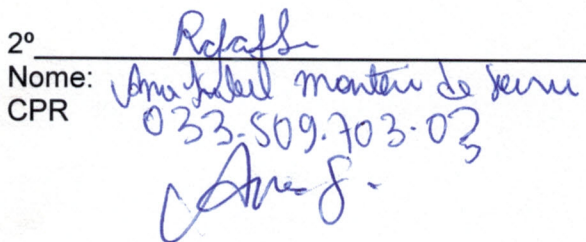 2º
Nome: Ana Isabel Monteiro de
CPR 033.509.703-03
Ana